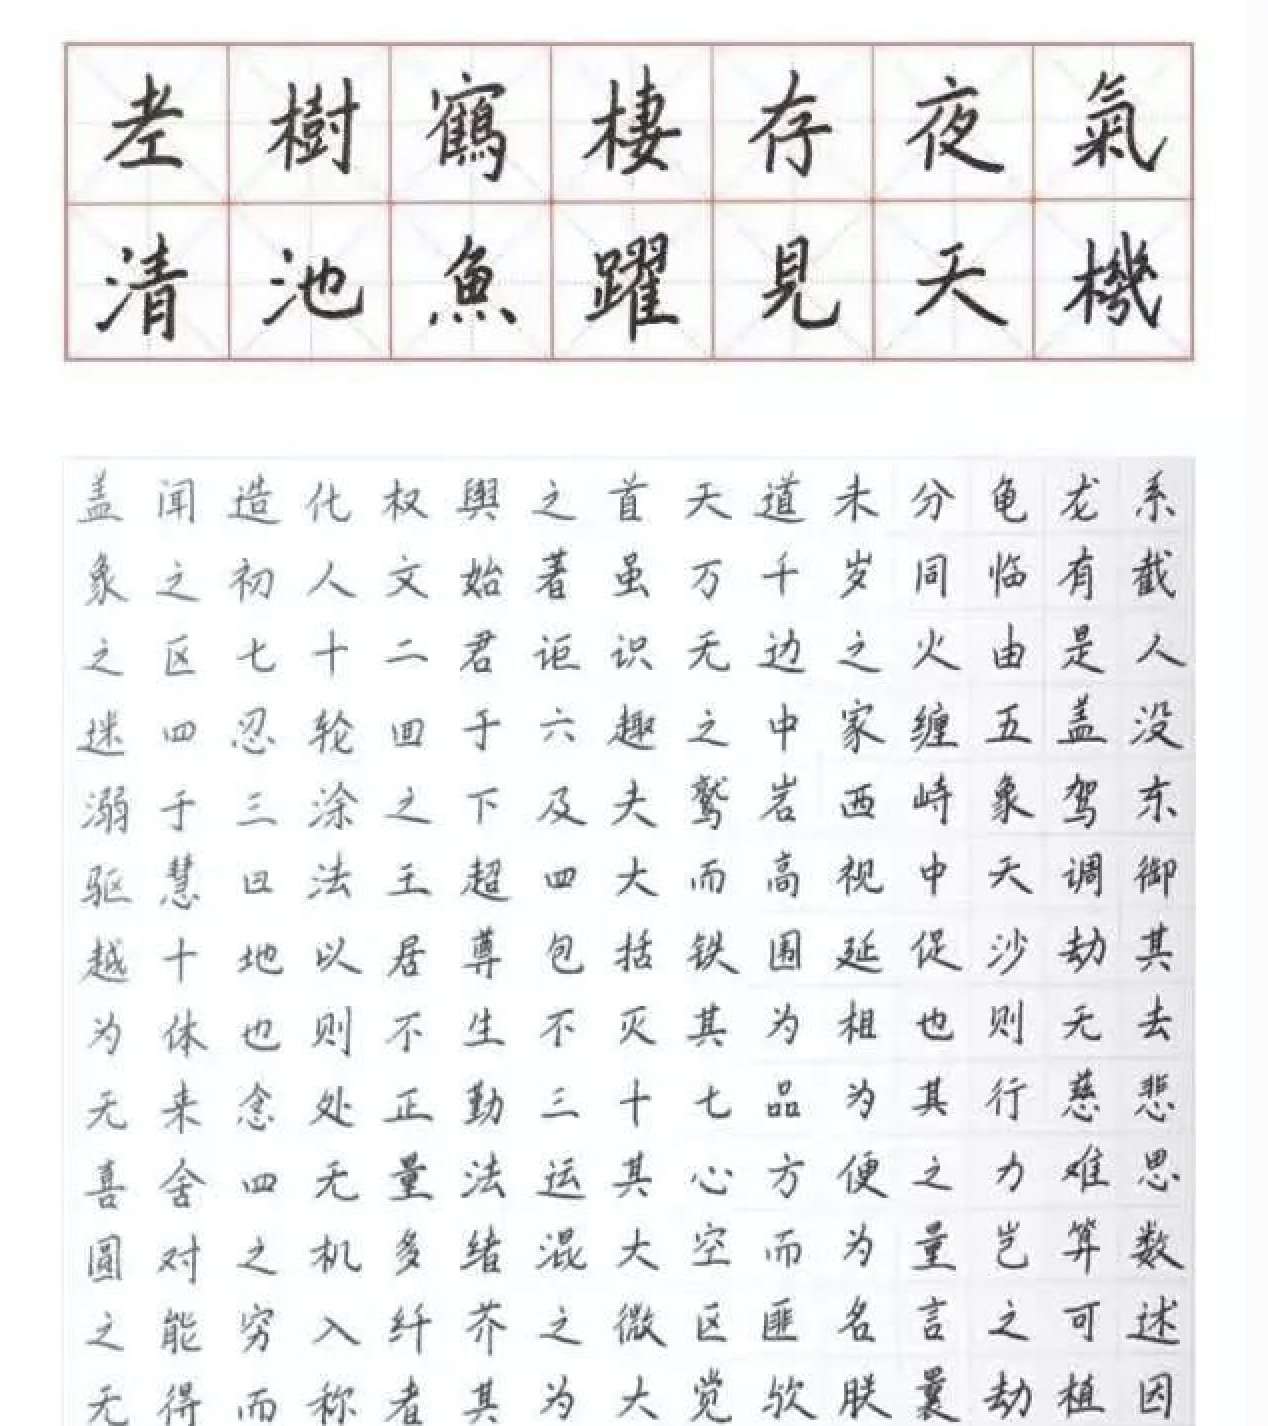 老樹鶴棲存夜氣
清池魚躍見天機
盖闻造化权舆之首天道未分龟龙系
象之初人文始著虽万千岁同临有截
之区七十二君讵识无边之火由是人
迷四忍轮回于六趣之中家缠五盖没
溺于三涂之下及夫鹫岩西峙象驾东
驱慧日法王超四大而高视中天调御
越十地以居尊包括铁围延促沙劫其
为体也则不生不灭其为相也则无去
无来念处正勤三十七品为其行慈悲
喜舍四无量法运其心方便之力难思
圆对之机多绪混大空而为量岂算数
之能穷入纤芥之微区匪名言之可述
无得而称者其为大觉欤朕曩劫植因